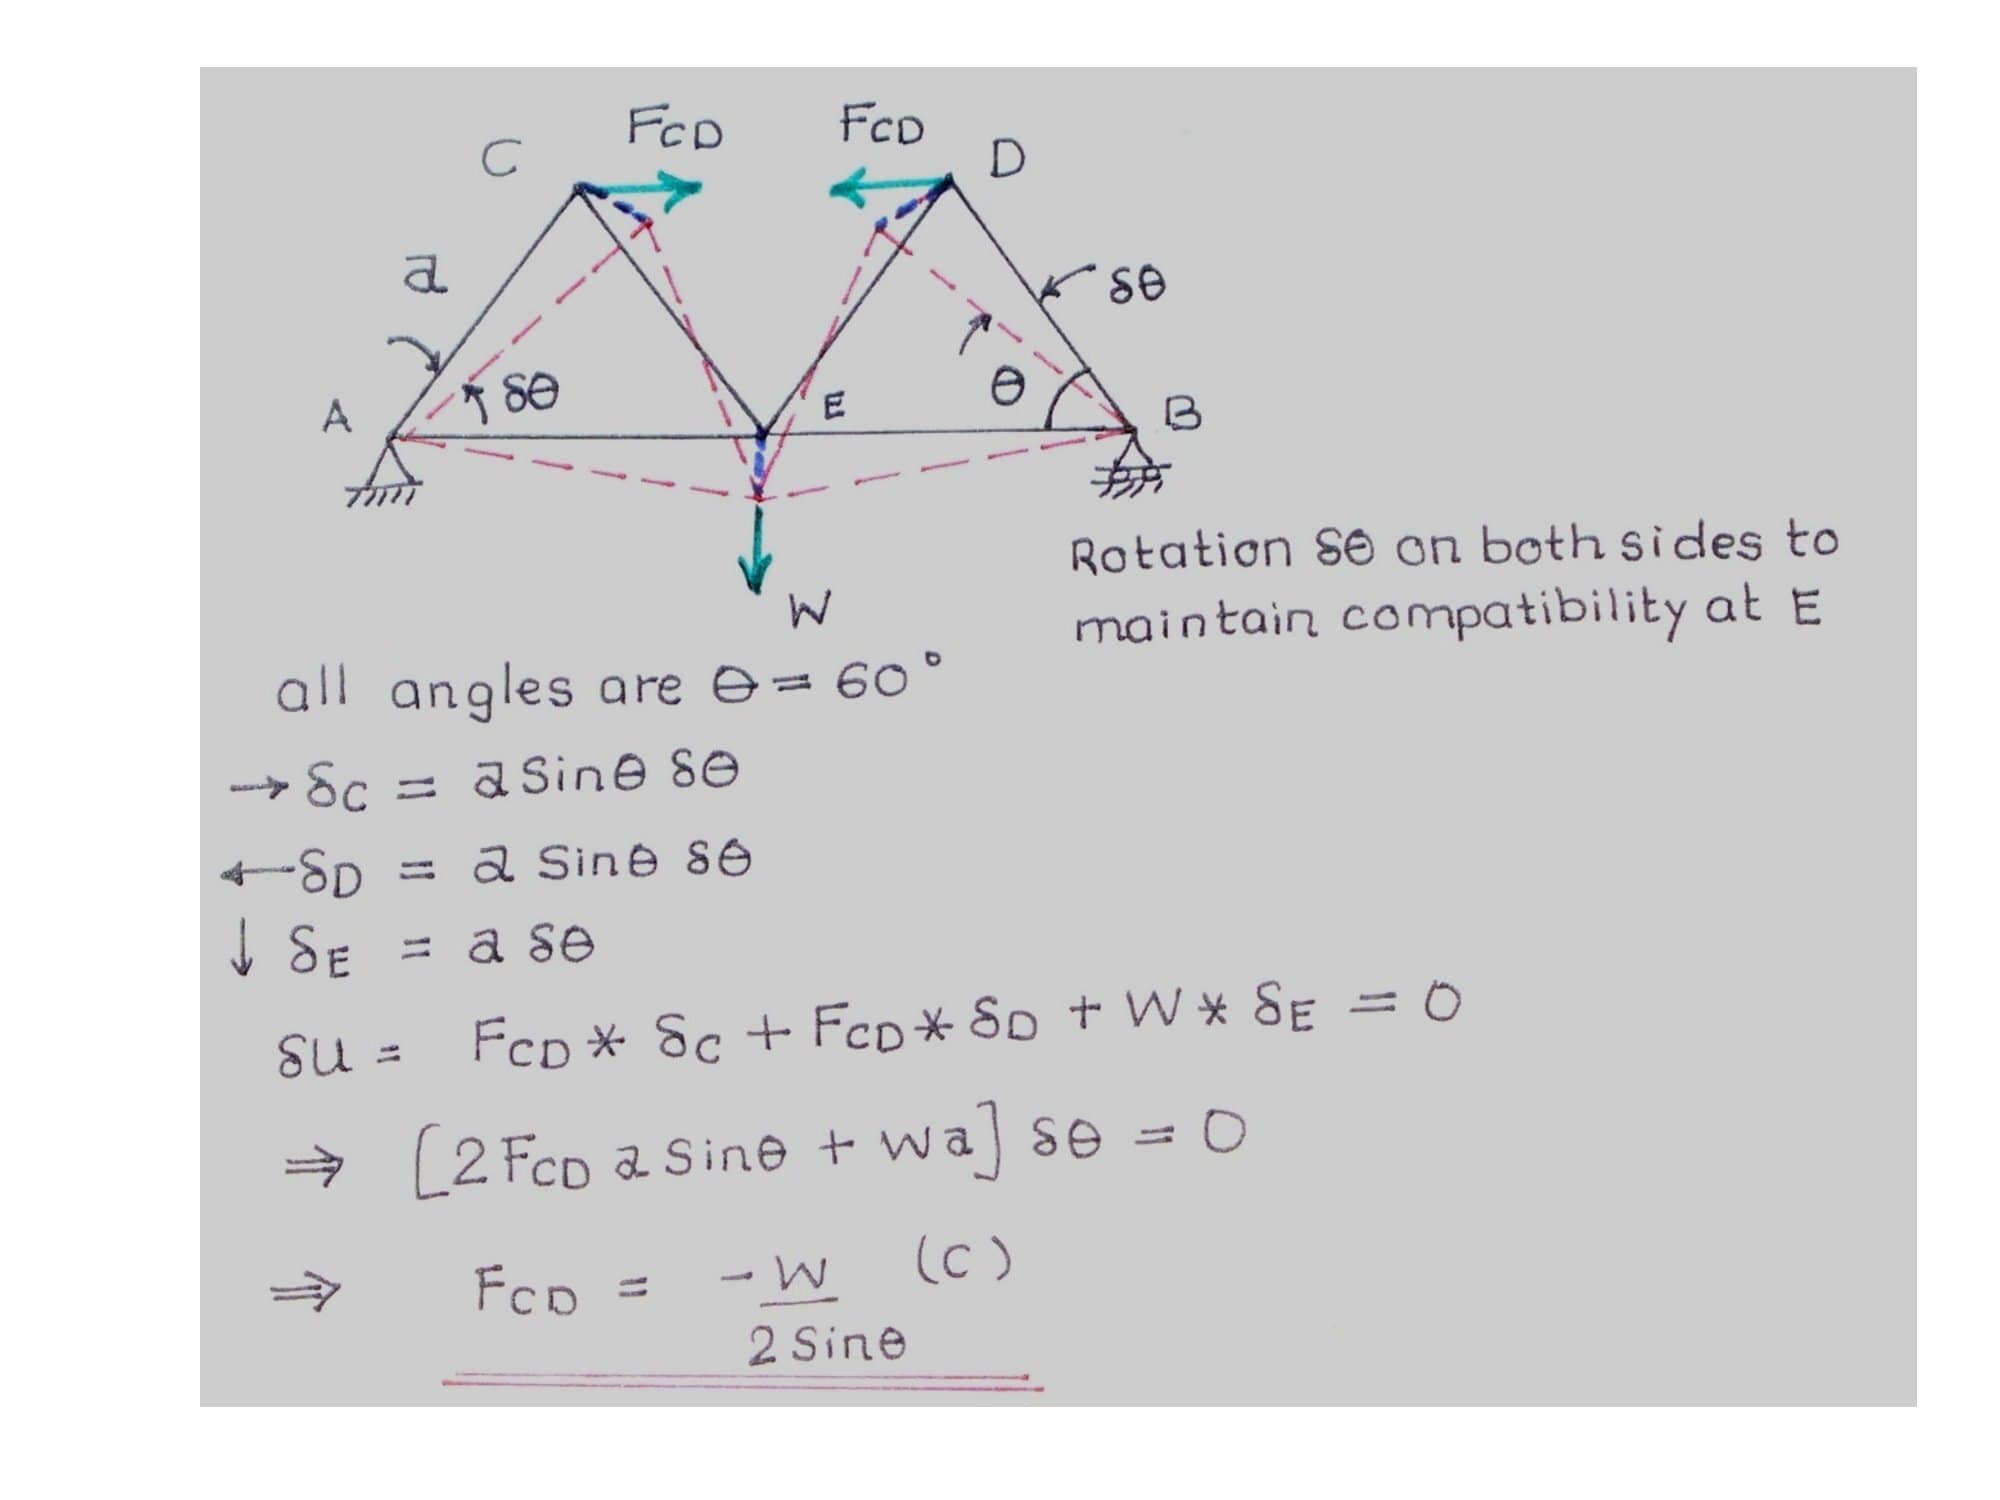 FCD FCD
C D
a δθ
δθ θ
A E B
W
Rotation δθ on both sides to
maintain compatibility at E
all angles are θ = 60°
→ δC = a Sinθ δθ
← δD = a Sinθ δθ
↓ δE = a δθ
δU = FCD * δC + FCD * δD + W * δE = 0
⇒ [2 FCD a Sinθ + Wa] δθ = 0
⇒ FCD = -W (C)
2 Sinθ